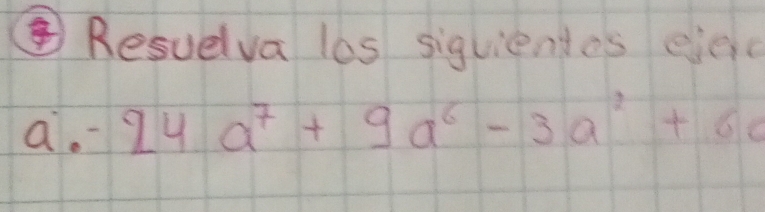 ④ Resuelva los siguientes ejerc
a.- 24 a⁷ + 9a⁶ - 3a² + 6a